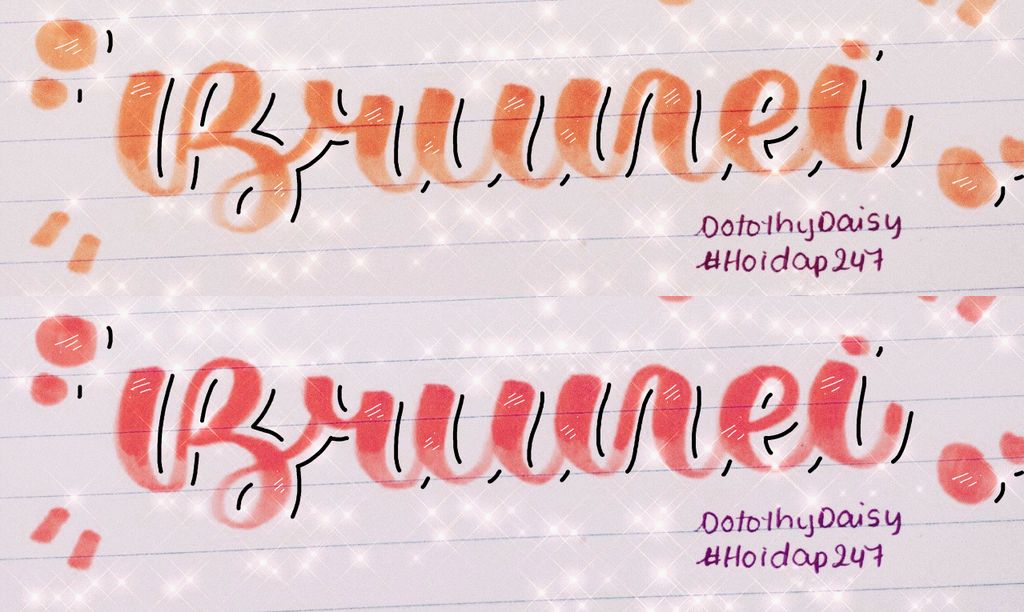 Brunei
DotothyDaisy
#Hoidap247
Brunei
DotothyDaisy
#Hoidap247